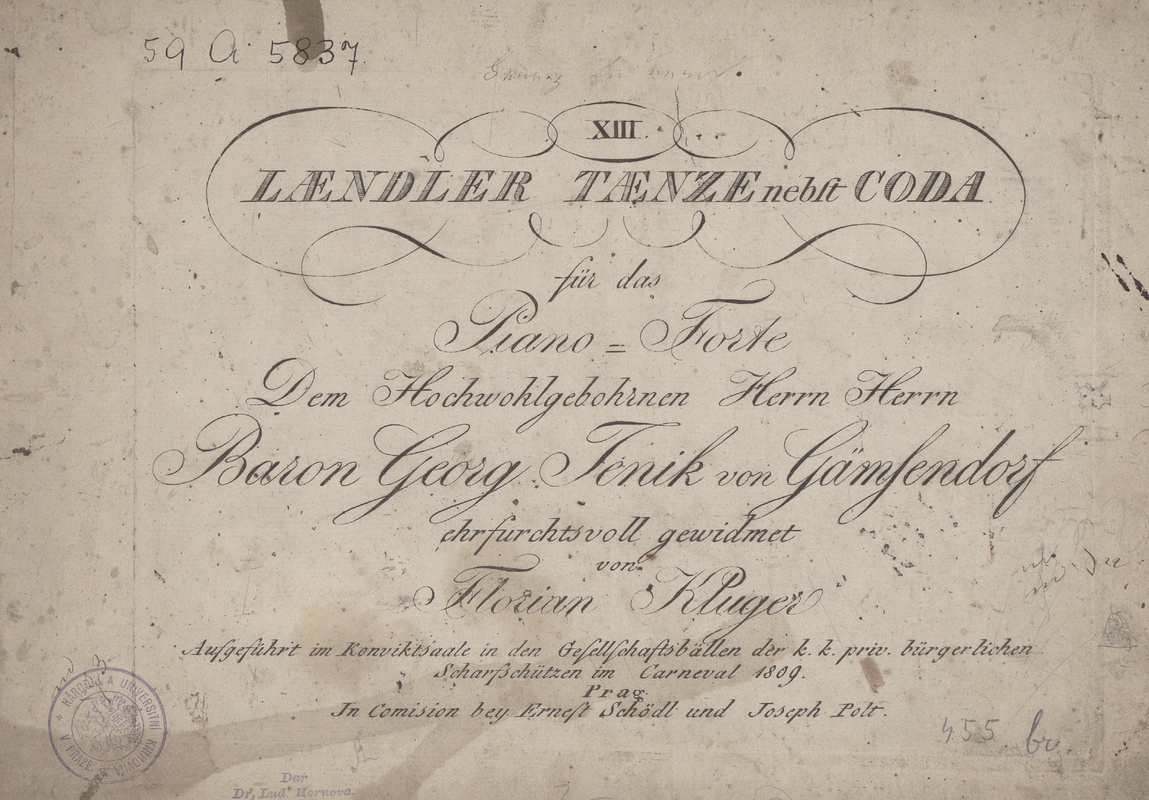 59 A 5837.
XIII.
LÆNDLER TÆNZE nebſt CODA
für das
Piano = Forte
Dem Hochwohlgebohrnen Herrn Herrn
Baron Georg Fenik von Gämſendorf
ehrfurchtsvoll gewidmet
von
Florian Kluger
Aufgeführt im Konviktsaale in den Geſellſchaftsbällen der k. k. priv. bürgerlichen
Scharfſchützen im Carneval 1809.
Prag.
In Comision bey Erneſt Schödl und Joseph Polt.
NÁRODNÍ A UNIVERSITNÍ KNIHOVNA V PRAZE
455 br.
Dar
Dr. Lud. Hornova